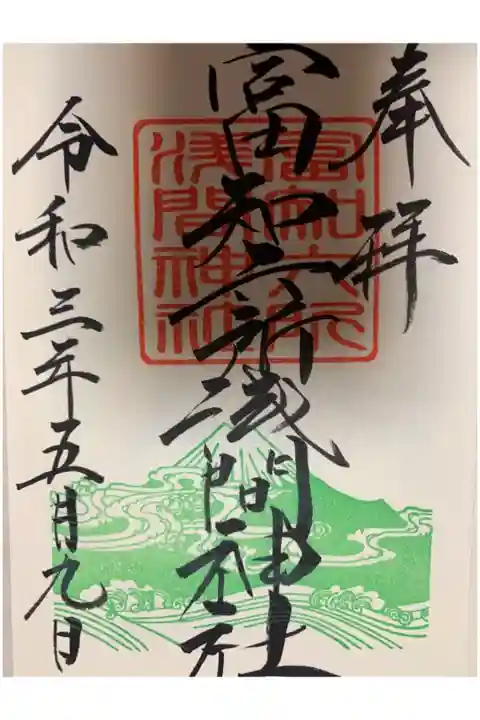 奉拝
富知六所浅間神社
富知六所
浅間神社
令和三年五月九日